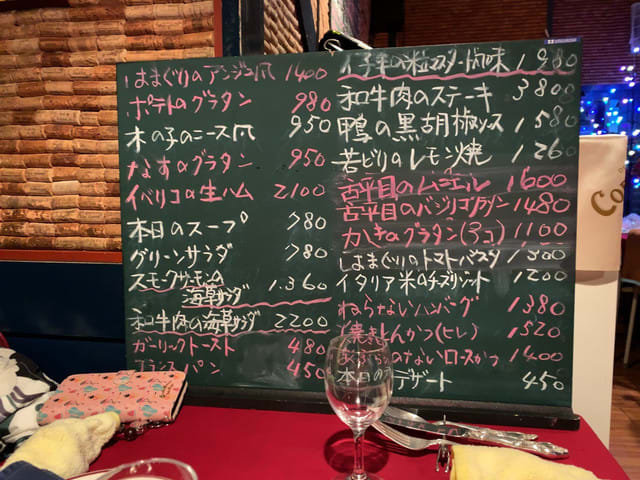 はまぐりのアンジュ風 1400
ポテトのグラタン 980
木の子のニース風 950
なすのグラタン 950
イベリコの生ハム 2100
本日のスープ 780
グリーンサラダ 780
スモークサーモンの
海草サラダ 1.360
和牛肉の海草サラダ 2200
ガーリックトースト 480
フランスパン 450
仔羊の粒マスタード風味 1980
和牛肉のステーキ 3800
鴨の黒胡椒ソース 1580
若どりのレモン焼 1260
舌平目のムニエル 1600
舌平目のバジリコグラタン 1480
かきのグラタン(3コ) 1100
はまぐりのトマトパスタ 1300
イタリア米のチーズリゾット 1200
ねらないハンバーグ 1380
焼きとんかつ(ヒレ) 1520
あぶらのないロースかつ 1400
本日のデザート 450
Co